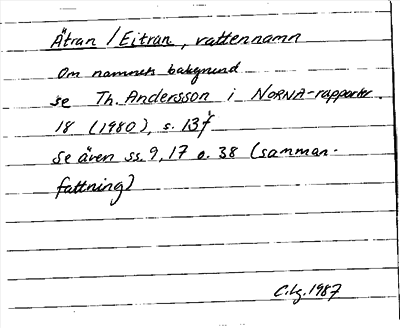 Ätran / Eitran, vattennamn
Om namnets bakgrund
se Th. Andersson i NORNA-rapporter
18 (1980), s. 13f
Se även ss. 9, 17 o. 38 (samman-
fattning)
C.Lg. 1987